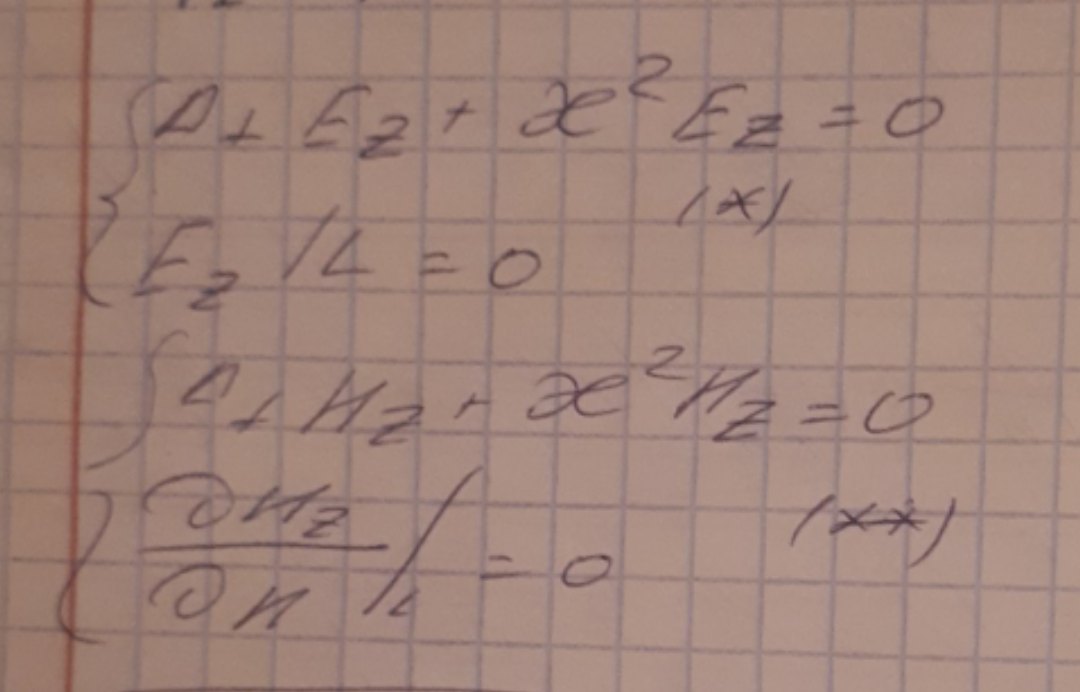 { Δ⊥ E_z + æ² E_z = 0
(*)
E_z |_L = 0
{ Δ⊥ H_z + æ² H_z = 0
∂H_z/∂n |_L = 0 (**)